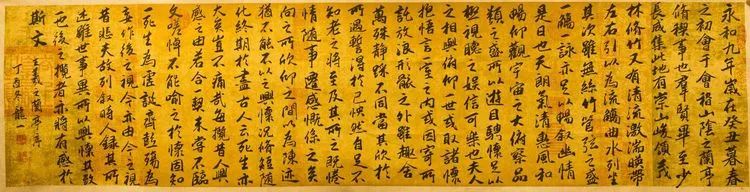 永和九年歲在癸丑暮春
之初會于會稽山陰之蘭亭
脩禊事也群賢畢至少
長咸集此地有崇山峻領茂
林脩竹又有清流激湍暎帶
左右引以為流觴曲水列坐
其次雖無絲竹管弦之盛
一觴一詠亦足以暢叙幽情
是日也天朗氣清惠風和
暢仰觀宇宙之大俯察品
類之盛所以遊目騁懷足以
極視聽之娛信可樂也夫人
之相與俯仰一世或取諸懷
抱悟言一室之內或因寄所
託放浪形骸之外雖趣舍
萬殊靜躁不同當其欣於
所遇暫得於己怏然自足不
知老之將至及其所之既惓
情隨事遷感慨係之矣
向之所欣俛仰之間以為陳迹
猶不能不以之興懷況脩短隨
化終期於盡古人云死生亦
大矣豈不痛哉每攬昔人興
感之由若合一契未嘗不臨
文嗟悼不能喻之於懷固知
一死生為虛誕齊彭殤為
妄作後之視今亦由今之視
昔悲夫故列叙時人錄其所
述雖世殊事異所以興懷其致
一也後之攬者亦將有感於
斯文 王羲之蘭亭序
丁酉冬